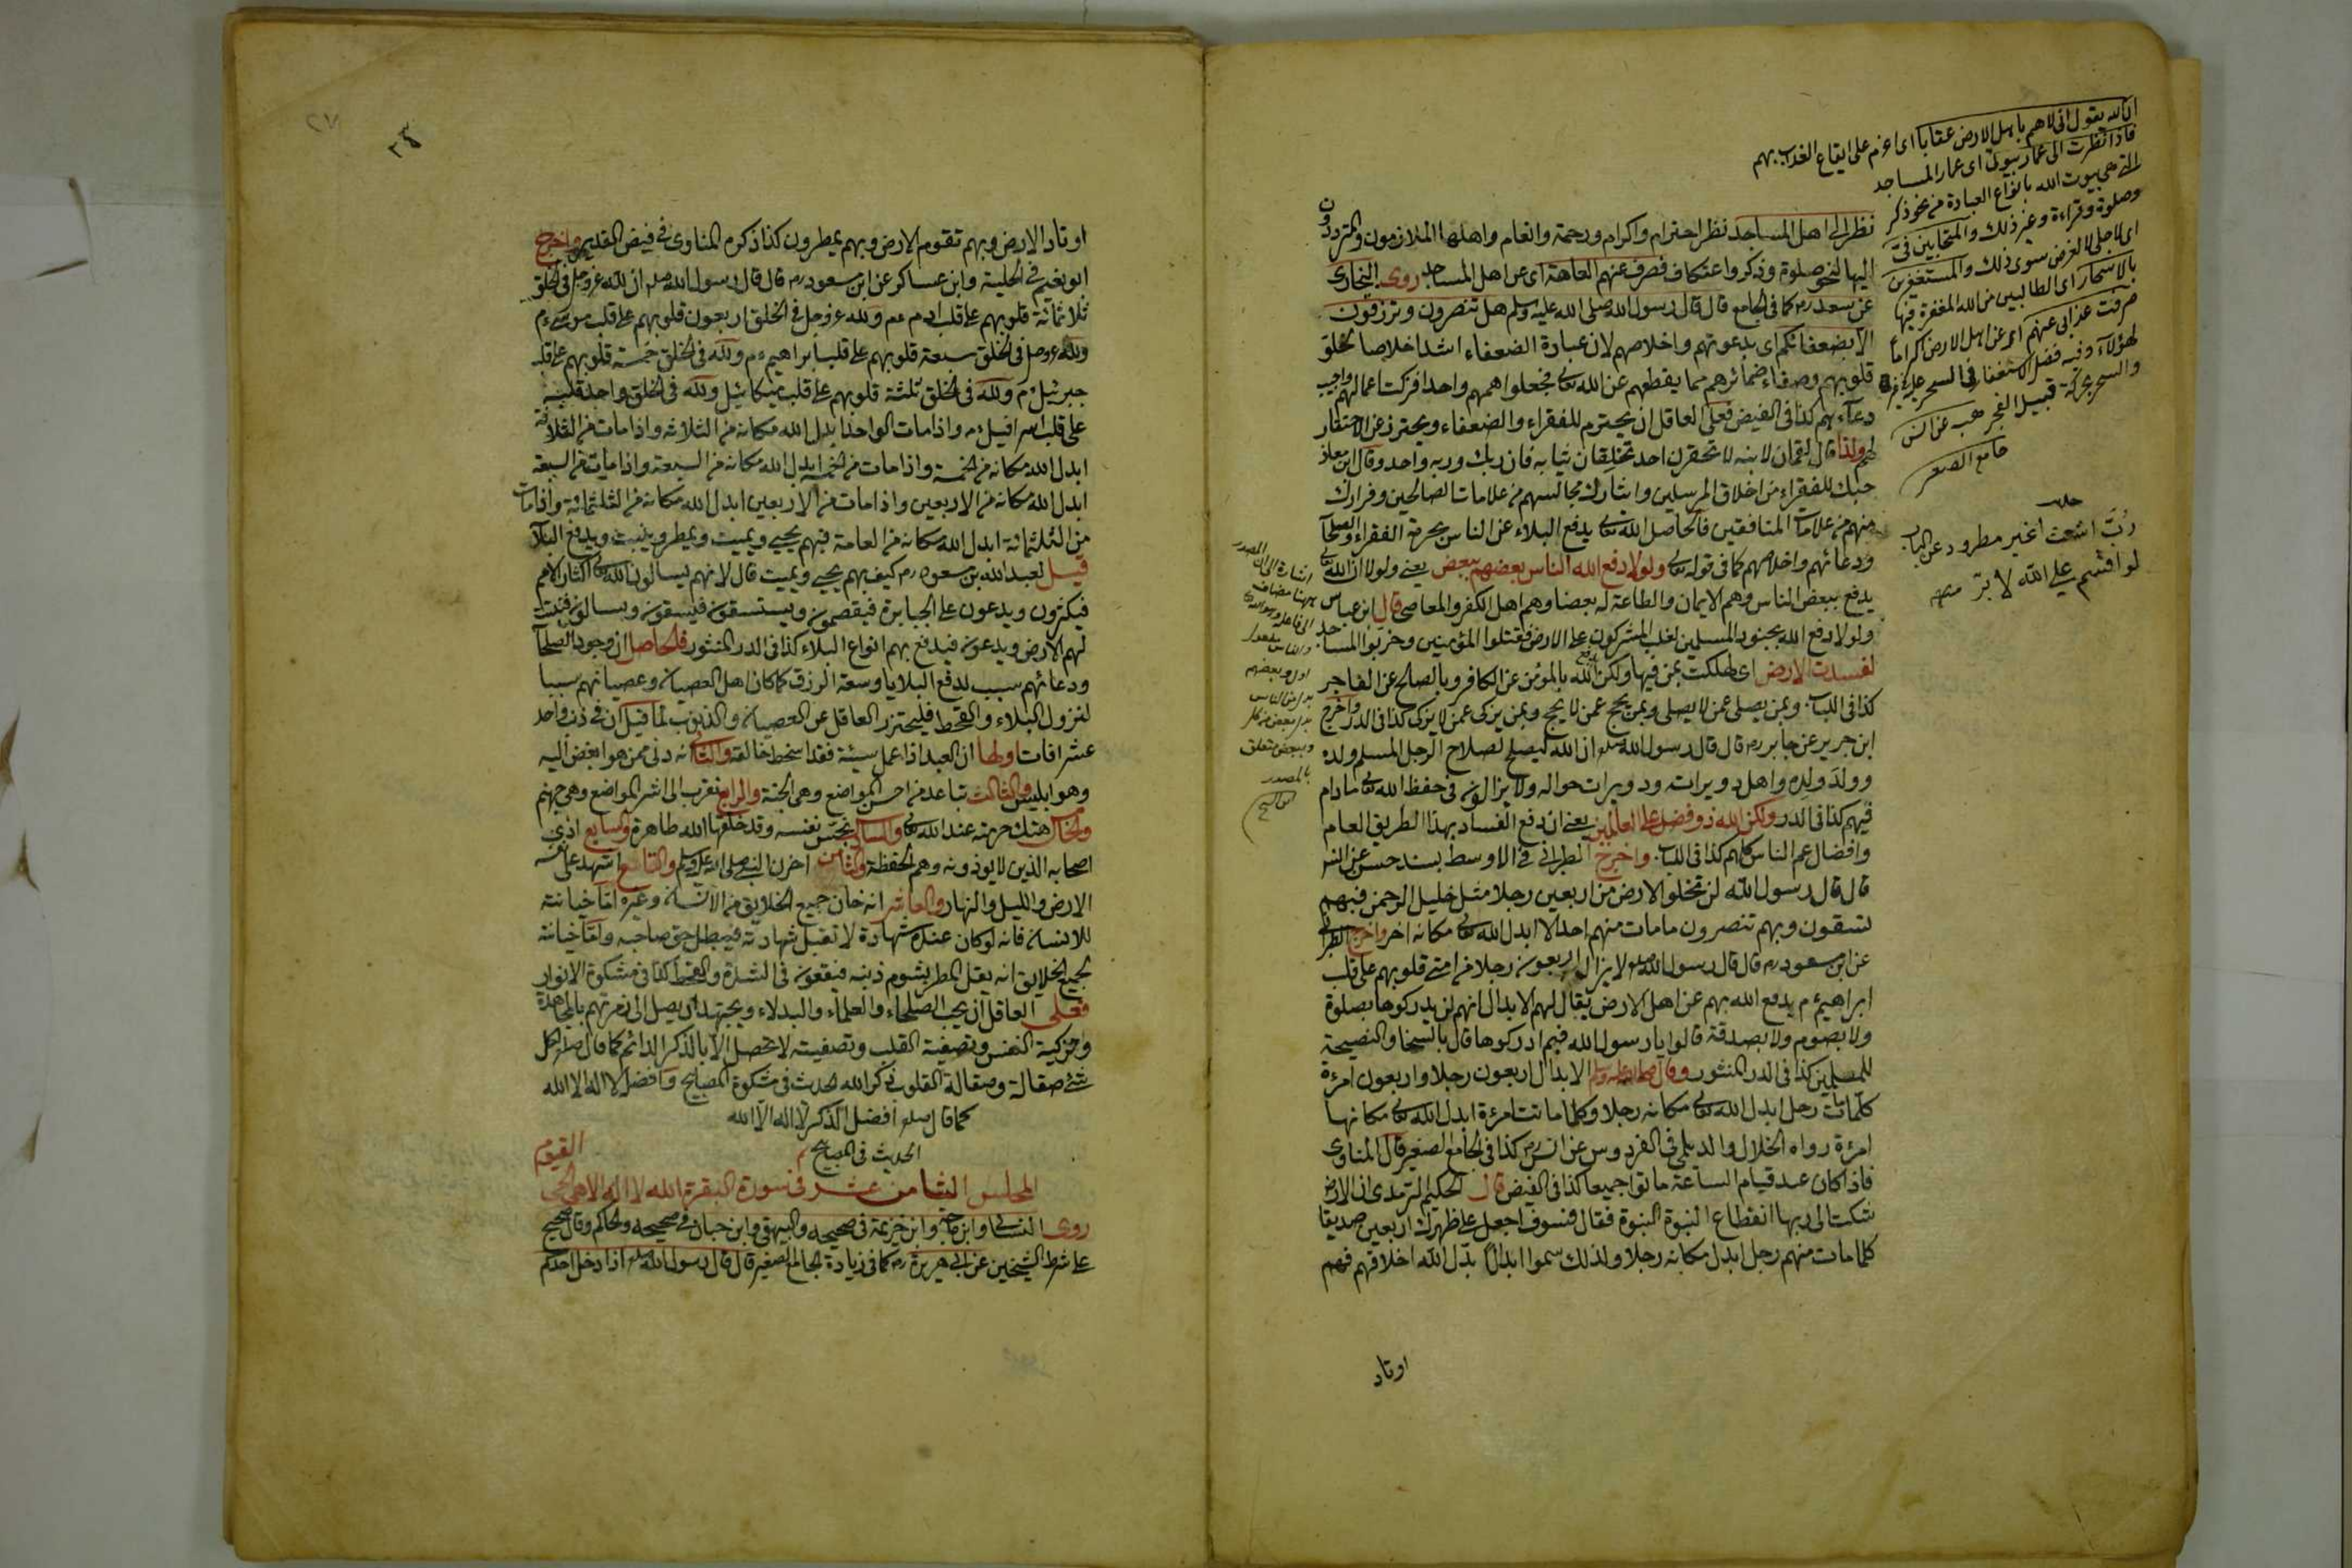 ان الله يقول انى لاهم باهل الارض عقابا اى اعزم على ايقاع العذاب بهم
فاذا نظرت الى عمار بيوتى اى عمار المساجد
التى هى بيوت الله بانواع العبادة من نحو ذكر
وصلوة وقراءة وغير ذلك والمتحابين فى
اى لاجلى لا لغرض سوى ذلك والمستغفرين
بالاسحار اى الطالبين من الله المغفرة فيها
صرفت عذابى عنهم اى عن اهل الارض اكراما
لهؤلاء وفيه فضل الاستغفار فى السحر على غيره
والسحر بحركة قبيل الفجر هب عن انس
جامع الصغير
رب اشعث اغبر مطرود عن الباب
لو اقسم على الله لابره
نظر الى اهل المساجد نظر احترام واكرام ورحمة وانعام واهلها الملازمون والمترددون
اليها لنحو صلوة وذكر واعتكاف فصرف عنهم العاهة اى عن اهل المساجد روى البخارى
عن سعد رم كما فى الجامع قال قال رسول الله صلى الله عليه وسلم هل تنصرون وترزقون
الا بضعفائكم اى بدعوتهم واخلاصهم لان عبادة الضعفاء اشد اخلاصا لخلو
قلوبهم وصفاء ضمائرهم مما يقطعهم عن الله تعالى فجعلوا همهم واحدا فزكت اعمالهم واجيب
دعاءهم كذا فى الفيض فعلى العاقل ان يحترم للفقراء والضعفاء ويحترز عن الاحتقار
لهم ولذا قال لقمان لابنه لا تحقرن احد تخلقان ثيابه فان ربك وربه واحد وقال ابن معاذ
حبك للفقراء من اخلاق المرسلين وايثارك مجالستهم من علامات الصالحين وفرارك
منهم من علامات المنافقين فالحاصل الله تعالى يدفع البلاء عن الناس بحرمة الفقراء والصلحآ
ودعائهم واخلاصهم كما فى قوله تعالى ولولا دفع الله الناس بعضهم ببعض يعنى ولولا ان الله تعالى
يدفع ببعض الناس وهم الايمان والطاعة له بعضا وهم اهل الكفر والمعاصى قال ابن عباس
ولولا دفع الله بجنود المسلمين لغلب المشركون على الارض فقتلوا المؤمنين وخربوا المساجد
لفسدت الارض اى لهلكت بمن فيها ولكن الله يدفع بالمؤمن عن الكافر وبالصالح عن الفاجر
كذا فى اللباب وبمن يصلى عمن لا يصلى وبمن يحج عمن لا يحج وبمن يزكى عمن لا يزكى كذا فى الدر واخرج
ابن جرير عن جابر رم قال قال رسول الله صلعم ان الله ليصلح لصلاح الرجل المسلم ولده
وولد ولده واهل دويراته ودويرات حواله ولا يزالون فى حفظ الله تعالى مادام
فيهم كذا فى الدر ولكن الله ذو فضل على العالمين يعنى ان دفع الفساد بهذا الطريق العام
وافضال عم الناس كلهم كذا فى اللباب واخرج الطبرانى فى الاوسط بسند حسن عن انس
قال قال رسول الله لن تخلو الارض من اربعين رجلا مثل خليل الرحمن فبهم
تسقون وبهم تنصرون ما مات منهم احد الا ابدل الله تعالى مكانه اخر واخرج الطبرانى
عن ابن مسعود رم قال قال رسول الله صلعم لا يزال اربعون رجلا من امتى قلوبهم على قلب
ابراهيم عم يدفع الله بهم عن اهل الارض يقال لهم الابدال انهم لن يدركوها بصلوة
ولا بصوم ولا بصدقة قالوا يا رسول الله فبم ادركوها قال بالسخا والنصيحة
للمسلمين كذا فى الدر المنثور وقال صلى الله عليه وسلم الابدال اربعون رجلا واربعون امرءة
كلما مات رجل ابدل الله تعالى مكانه رجلا وكلما ماتت امرءة ابدل الله تعالى مكانها
امرءة رواه الخلال والديلمى فى الفردوس عن انس رض كذا فى الجامع الصغير قال المناوى
فاذا كان عند قيام الساعة ماتوا جميعا كذا فى الفيض قال الحكيم الترمذى ان الارض
شكت الى ربها انقطاع النبوة النبوة فقال فسوف اجعل على ظهرك اربعين صديقا
كلما مات منهم رجل ابدل مكانه رجلا ولذلك سموا ابدالا بدل الله اخلاقهم فهم
اوتاد
اشارة الى ان المصدر
بهنا مضافت
الى فاعله وهو الله
والناس مفعول
اول وبعضهم
بدل من الناس
بدل بعض من كل
وببعض متعلق
بالمصدر
٢٧
٢٤
اوتاد الارض وبهم تقوم الارض وبهم يمطرون كذا ذكره المناوى فى فيض القدير واخرج
ابو نعيم فى الحلية وابن عساكر عن ابن مسعود رم قال قال رسول الله صلعم ان لله عز وجل فى الخلق
ثلاثمائة قلوبهم على قلب ادم عم ولله عز وجل فى الخلق اربعون قلوبهم على قلب موسى عم
ولله عز وجل فى الخلق سبعة قلوبهم على قلب ابراهيم عم ولله فى الخلق خمسة قلوبهم على قلب
جبرئيل عم ولله فى الخلق ثلثة قلوبهم على قلب ميكائيل ولله فى الخلق واحد قلبه
على قلب اسرافيل عم واذا مات الواحد ابدل الله مكانه من الثلاثه واذا مات من الثلاثة
ابدل الله مكانه من الخمسة واذا مات من الخمسة ابدل الله مكانه من السبعة واذا مات من السبعة
ابدل الله مكانه من الاربعين واذا مات من الاربعين ابدل الله مكانه من الثلثمائة واذا مات
من الثلثمائة ابدل الله مكانه من العامة فبهم يحيى ويميت ويمطر وينبت ويدفع البلآء
قيل لعبد الله بن مسعود رم كيف بهم يحيى ويميت قال لانهم يسالون الله تعالى اكثار الامم
فيكثرون ويدعون على الجبابرة فيقصمون ويستسقون فيسقون ويسالون فتنبت
لهم الارض ويدعون فيدفع بهم انواع البلاء كذا فى الدر المنثور فالحاصل ان وجود الصلحآ
ودعائهم سبب لدفع البلايا وسعة الرزق كما كان اهل العصيان وعصيانهم سببا
لنزول البلاء والقحط فليحترز العاقل عن العصيان والذنوب لما قيل ان فى ذنب واحد
عشر افات اولها ان العبد اذا عمل سيئة فقد اسخط خالقه والثانى انه دنى ممن هو ابغض اليه
وهو ابليس والثالث تباعد من احسن المواضع وهى الجنة والرابع تقرب الى اشر المواضع وهى جهنم
والخامس هتك حرمته عند الله تعالى والسادس نجس نفسه وقد خلقها الله طاهرة والسابع اذى
اصحابه الذين لا يوذونه وهم الحفظة والثامن احزن النبى صلى الله عليه وسلم والتاسع اشهد على نفسه
الارض والليل والنهار والعاشر انه خان جميع الخلايق من الانسان وغيره اما خيانته
للانسان فانه لو كان عنده شهادة لا تقبل شهادته فيبطل حق صاحبه واما خيانته
لجميع الخلايق انه يقل المطر بشوم ذنبه فيقعون فى الشدة والقحط كذا فى مشكوة الانوار
فعلى العاقل ان يحب الصلحاء والعلماء والبدلاء ويجتهد ان يصل الى زمرتهم بالمجاهدة
وتزكية النفس وتصفية القلب وتصفيته لا تحصل الا بالذكر الدائم كما قال صلعم لكل
شئ صقالة وصقالة القلوب ذكر الله الحديث فى مشكوة المصابيح وافضل لا اله الا الله
كما قال صلعم افضل الذكر لا اله الا الله
الحديث فى المصابيح
القيوم
المجلس الثامن عشر فى سورة البقرة الله لا اله الا هو الحى
روى النسائى وابن ماجه وابن خزيمة فى صحيحه والبيهقى وابن حبان فى صحيحه والحاكم وقال صحيح
على شرط الشيخين عن ابى هريرة رم كما فى زيادة الجامع الصغير قال قال رسول الله صلعم اذا دخل احدكم